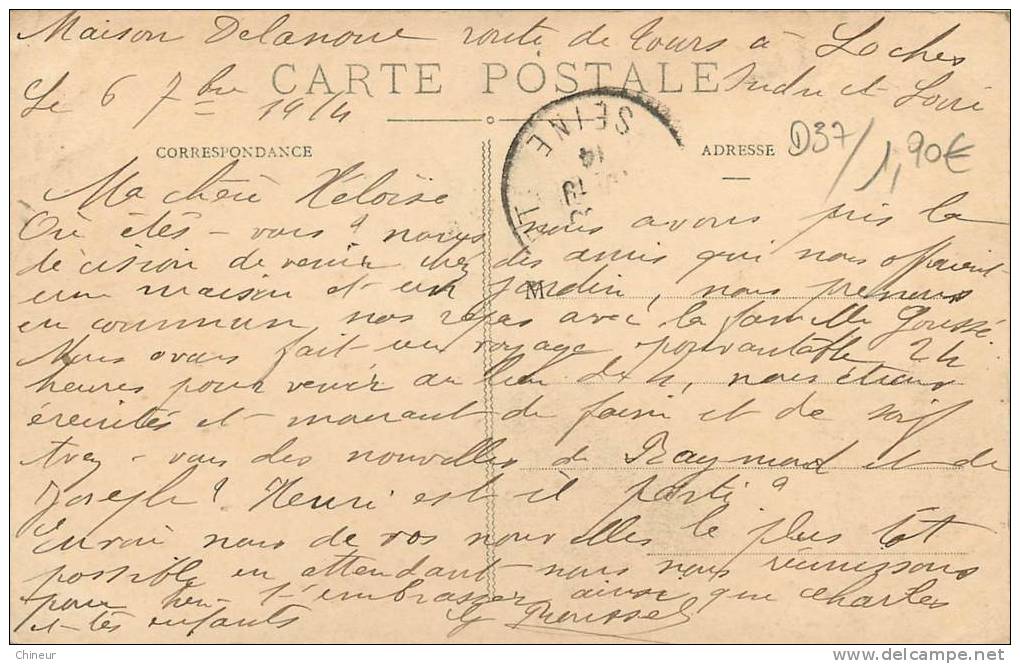 Maison Delanoue route de Tours à Loches
Indre et Loire
Le 6 7bre 1914
CARTE POSTALE
SEINE
14
CORRESPONDANCE
ADRESSE
D37/1,90€
Ma chère Héloïse
Où êtes-vous ? nous nous avons pris la
décision de venir chez des amis qui nous offraient
M
une maison et un jardin, nous prenons
en commun, nos repas avec la famille Goussé.
Nous avons fait un voyage épouvantable 24
heures pour venir au lieu de 4, nous étions
éreintés et mourant de faim et de soif
Avez-vous des nouvelles de Raymond et de
Joseph ? Henri est il parti ?
Envoie nous de vos nouvelles le plus tôt
possible en attendant nous nous réunissons
pour t'embrasser ainsi que Charles
et tes enfants
Chineur
www.delcampe.net